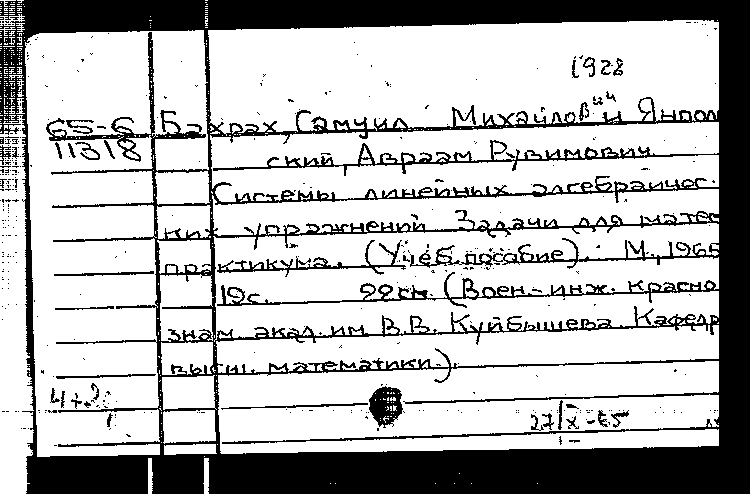 1928
65-6 Бахрах, Самуил Михайлович и Янпол
11318 ский, Авраам Рувимович
Системы линейных алгебраичес-
ких упражнений Задачи для матем
практикума. (Учеб. пособие). М., 1965
19с. 22см. (Воен.-инж. красно
знам. акад. им. В.В. Куйбышева. Кафедр
высш. математики).
27/X-65